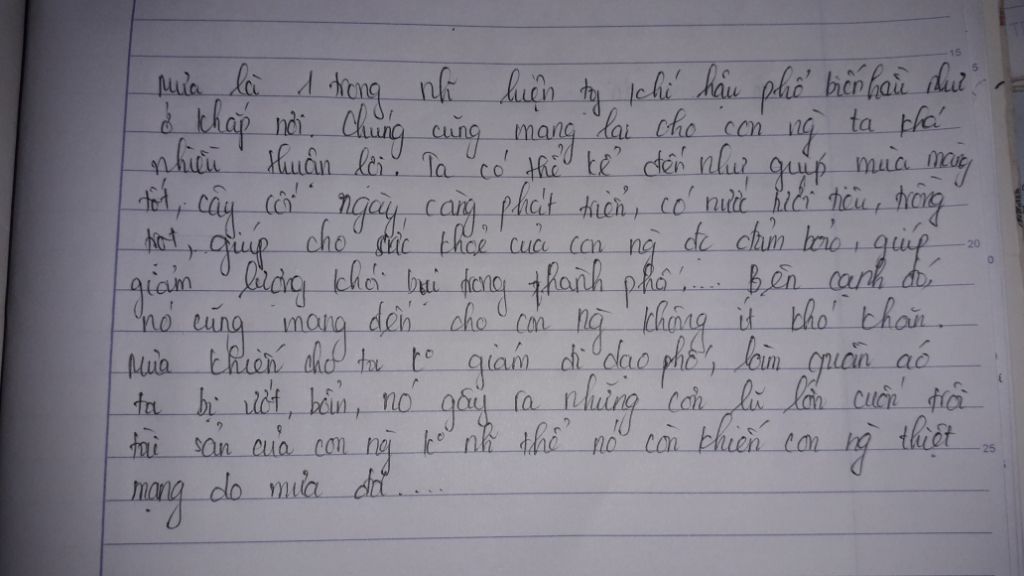 Mưa là 1 trong nh~ hiện tg khí hậu phổ biến hầu như
ở khắp nơi. Chúng cũng mang lại cho con ng` ta khá
nhiều thuận lợi. Ta có thể kể đến như giúp mùa màng
tốt, cây cối ngày càng phát triển, có nước tưới tiêu, trồng
trọt, giúp cho sức khoẻ của con ng` đc đảm bảo, giúp
giảm lượng khói bụi trong thành phố,.... Bên cạnh đó,
nó cũng mang đến cho con ng` không ít khó khăn.
Mưa khiến cho ta k° giám đi dạo phố, làm quần áo
ta bị ướt, bẩn, nó gây ra những cơn lũ lớn cuốn trôi
tài sản của con ng` k° nh~ thế nó còn khiến con ng` thiệt
mạng do mưa đá....
15
20
25